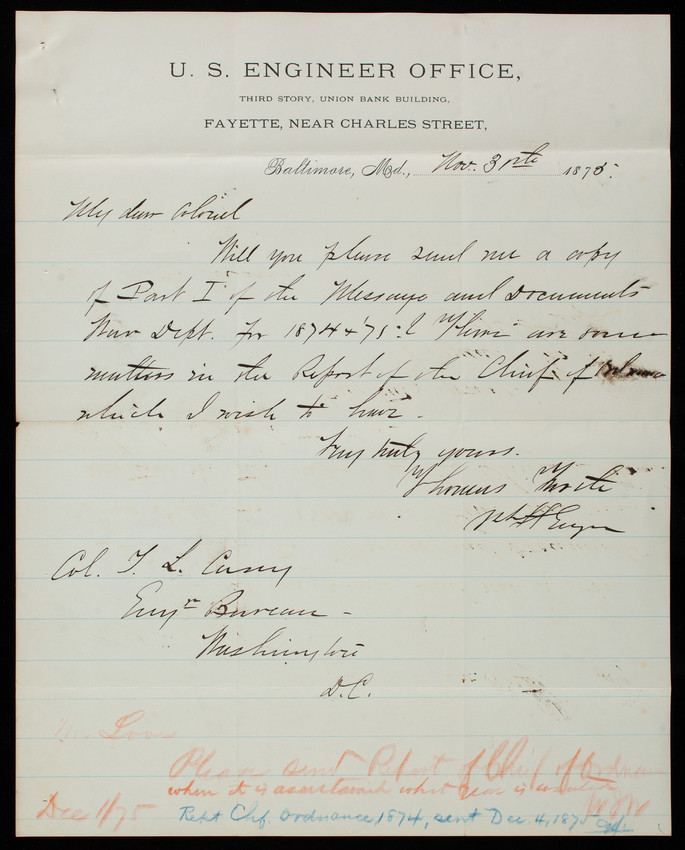 U. S. ENGINEER OFFICE,
THIRD STORY, UNION BANK BUILDING,
FAYETTE, NEAR CHARLES STREET,
Baltimore, Md., Nov. 30th 1875.
My dear Colonel
Will you please send me a copy
of Part I of the Message and Documents
War Dept. for 1874 & '75? There are some
matters in the Report of the Chief of Ordnance
which I wish to have.
Very truly yours.
Thomas Turtle
Engrs
Col. T. L. Casey
Engr Bureau -
Washington
D.C.
Please send Report of Chief of Ordnance
when it is ascertained what year is wanted
Dec 1/75
Rept Chf. Ordnance, 1874, sent Dec. 4, 1875